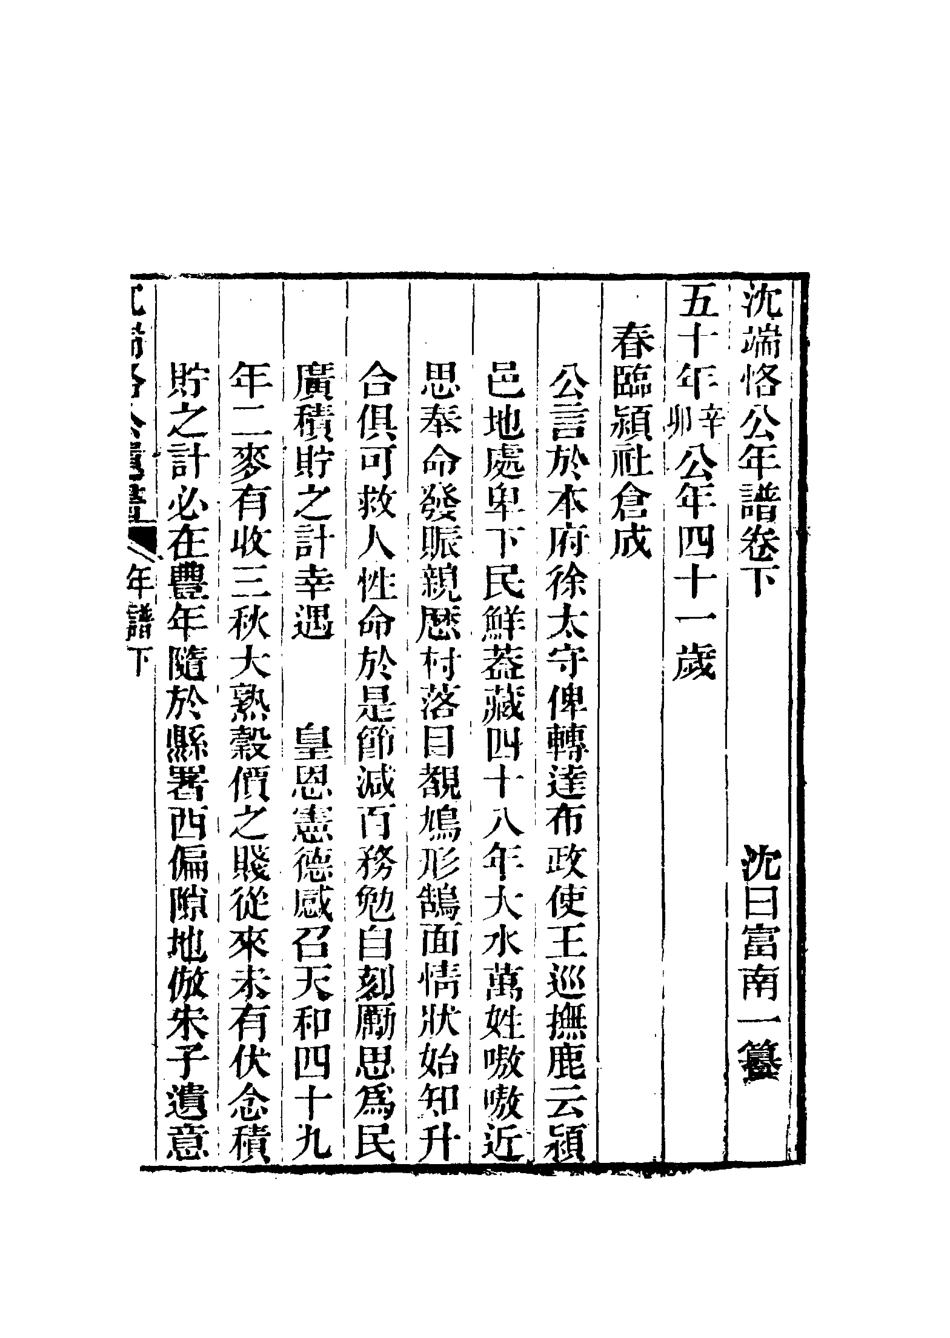 沈端恪公年譜卷下　沈曰富南一纂
五十年辛卯公年四十一歲
春臨潁社倉成
公言於本府徐太守俾轉達布政使王巡撫鹿云潁
邑地處卑下民鮮葢藏四十八年大水萬姓嗷嗷近
思奉命發賑親歷村落目覩鳩形鵠面情狀始知升
合俱可救人性命於是節減百務勉自刻勵思爲民
廣積貯之計幸遇　皇恩憲德感召天和四十九
年二麥有收三秋大熟穀價之賤從來未有伏念積
貯之計必在豐年隨於縣署西偏隙地倣朱子遺意
沈端恪公遺書　年譜下